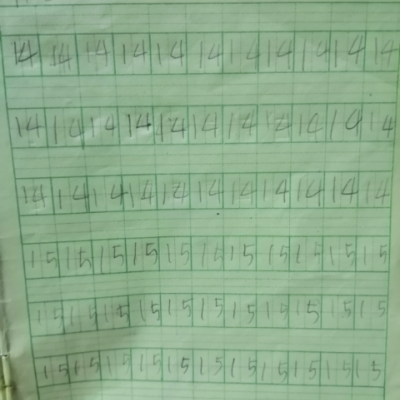 14 14 14 14 14 14 14 14 14 14 14
14 14 14 14 14 14 14 14 14 14 14
14 14 14 14 14 14 14 14 14 14 14
15 15 15 15 15 15 15 15 15 15 15
15 15 15 15 15 15 15 15 15 15 15
15 15 15 15 15 15 15 15 15 15 15